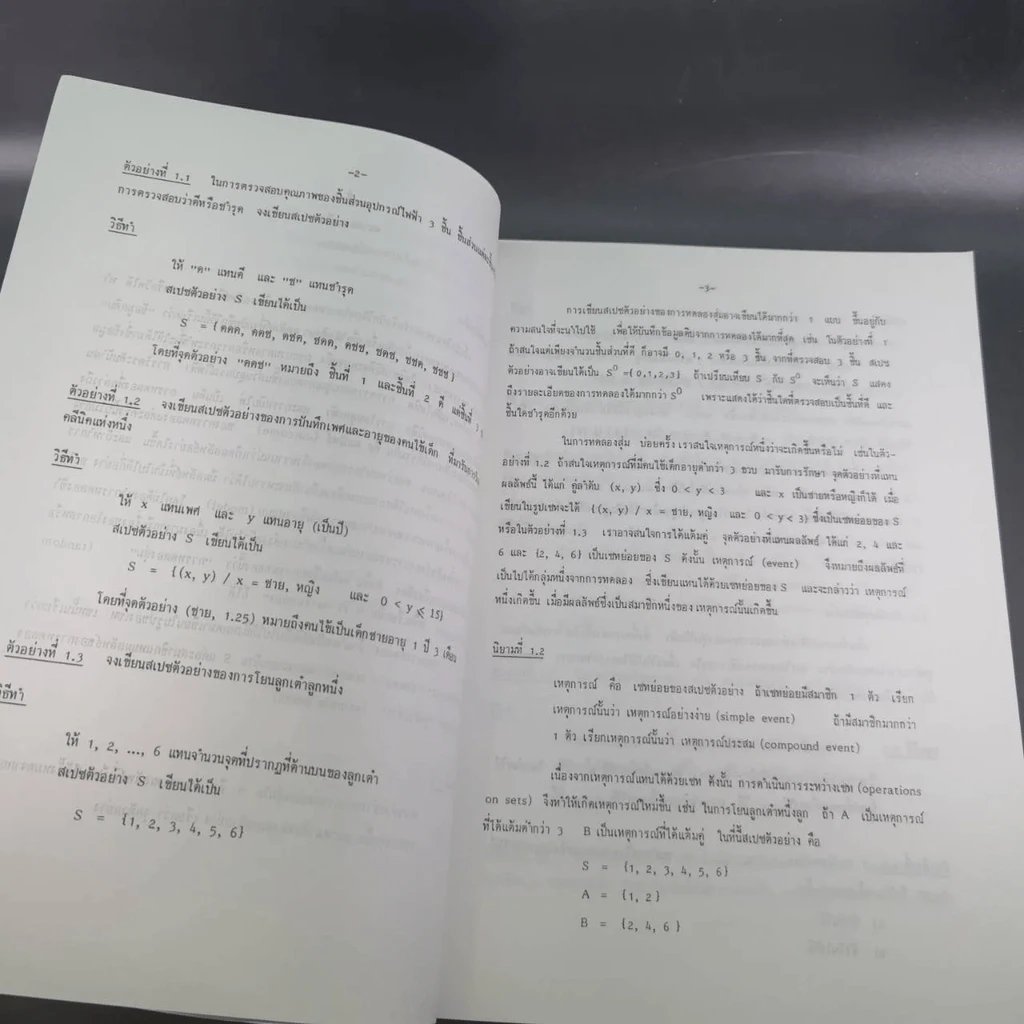 -2-
ตัวอย่างที่ 1.1 ในการตรวจสอบคุณภาพของชิ้นส่วนอุปกรณ์ไฟฟ้า 3 ชิ้น
การตรวจสอบว่าดีหรือชำรุด จงเขียนสเปซตัวอย่าง
วิธีทำ
ให้ "ด" แทนดี และ "ช" แทนชำรุด
สเปซตัวอย่าง S เขียนได้เป็น
S = {ดดด, ดดช, ดชด, ชดด, ดชช, ชดช, ชชด, ชชช}
โดยที่จุดตัวอย่าง "ดดช" หมายถึง ชิ้นที่ 1 และชิ้นที่ 2 ดี
ตัวอย่างที่ 1.2 จงเขียนสเปซตัวอย่างของการบันทึกเพศและอายุของคนไข้เด็ก
คลีนิคแห่งหนึ่ง
วิธีทำ
ให้ x แทนเพศ และ y แทนอายุ (เป็นปี)
สเปซตัวอย่าง S เขียนได้เป็น
S = {(x, y) / x = ชาย, หญิง และ 0 < y ⩽ 15}
โดยที่จุดตัวอย่าง (ชาย, 1.25) หมายถึงคนไข้เป็นเด็กชายอายุ 1 ปี 3 เดือน
ตัวอย่างที่ 1.3 จงเขียนสเปซตัวอย่างของการโยนลูกเต๋าลูกหนึ่ง
วิธีทำ
ให้ 1, 2, ..., 6 แทนจำนวนจุดที่ปรากฏที่ด้านบนของลูกเต๋า
สเปซตัวอย่าง S เขียนได้เป็น
S = {1, 2, 3, 4, 5, 6}
-3-
การเขียนสเปซตัวอย่างของการทดลองสุ่มอาจเขียนได้มากกว่า 1 แบบ ขึ้นอยู่กับ
ความสนใจที่จะนำไปใช้ เพื่อให้บันทึกข้อมูลดิบจากการทดลองได้มากที่สุด เช่น ในตัวอย่างที่ 1
ถ้าสนใจแต่เพียงจำนวนชิ้นส่วนที่ดี ก็อาจมี 0, 1, 2 หรือ 3 ชิ้น จากที่ตรวจสอบ 3 ชิ้น สเปซ
ตัวอย่างอาจเขียนได้เป็น S⁰ ={0,1,2,3} ถ้าเปรียบเทียบ S กับ S⁰ จะเห็นว่า S แสดง
ถึงรายละเอียดของการทดลองได้มากกว่า S⁰ เพราะแสดงได้ว่าชิ้นใดที่ตรวจสอบเป็นชิ้นที่ดี และ
ชิ้นใดชำรุดอีกด้วย
ในการทดลองสุ่ม บ่อยครั้ง เราสนใจเหตุการณ์หนึ่งว่าจะเกิดขึ้นหรือไม่ เช่นในตัว-
อย่างที่ 1.2 ถ้าสนใจเหตุการณ์ที่มีคนไข้เด็กอายุต่ำกว่า 3 ขวบ มารับการรักษา จุดตัวอย่างที่แทน
ผลลัพธ์นี้ ได้แก่ คู่ลำดับ (x, y) ซึ่ง 0 < y < 3 และ x เป็นชายหรือหญิงก็ได้ เมื่อ
เขียนในรูปเซทจะได้ {(x, y) / x = ชาย, หญิง และ 0 < y < 3} ซึ่งเป็นเซทย่อยของ S
หรือในตัวอย่างที่ 1.3 เราอาจสนใจการได้แต้มคู่ จุดตัวอย่างที่แทนผลลัพธ์ ได้แก่ 2, 4 และ
6 และ {2, 4, 6} เป็นเซทย่อยของ S ดังนั้น เหตุการณ์ (event) จึงหมายถึงผลลัพธ์ที่
เป็นไปได้กลุ่มหนึ่งจากการทดลอง ซึ่งเขียนแทนได้ด้วยเซทย่อยของ S และจะกล่าวว่า เหตุการณ์
หนึ่งเกิดขึ้น เมื่อมีผลลัพธ์ซึ่งเป็นสมาชิกหนึ่งของ เหตุการณ์นั้นเกิดขึ้น
นิยามที่ 1.2
เหตุการณ์ คือ เซทย่อยของสเปซตัวอย่าง ถ้าเซทย่อยมีสมาชิก 1 ตัว เรียก
เหตุการณ์นั้นว่า เหตุการณ์อย่างง่าย (simple event) ถ้ามีสมาชิกมากกว่า
1 ตัว เรียกเหตุการณ์นั้นว่า เหตุการณ์ประสม (compound event)
เนื่องจากเหตุการณ์แทนได้ด้วยเซท ดังนั้น การดำเนินการระหว่างเซท (operations
on sets) จึงทำให้เกิดเหตุการณ์ใหม่ขึ้น เช่น ในการโยนลูกเต๋าหนึ่งลูก ถ้า A เป็นเหตุการณ์
ที่ได้แต้มต่ำกว่า 3 B เป็นเหตุการณ์ที่ได้แต้มคู่ ในที่นี้สเปซตัวอย่าง คือ
S = {1, 2, 3, 4, 5, 6}
A = {1, 2}
B = {2, 4, 6}